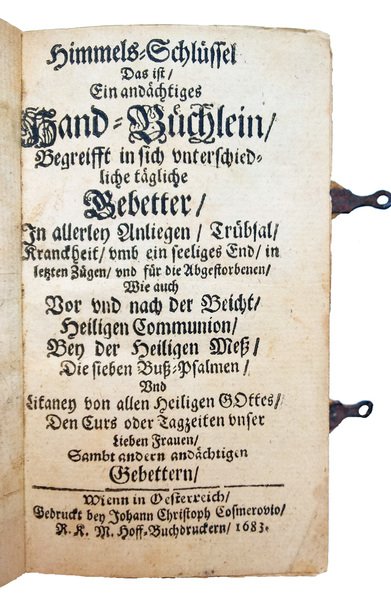 Himmels-Schlüssel
Das ist/
Ein andächtiges
Hand-Büchlein/
Begreifft in sich vnterschied-
liche tägliche
Gebetter/
In allerley Anliegen / Trübsal/
Kranckheit/ vmb ein seeliges End/ in
letzten Zügen/ vnd für die Abgestorbenen/
Wie auch
Vor vnd nach der Beicht/
Heiligen Communion/
Bey der Heiligen Meß/
Die sieben Buß-Psalmen/
Vnd
Litaney von allen Heiligen GOttes/
Den Curs oder Tagzeiten vnser
Lieben Frauen/
Sambt andern andächtigen
Gebettern/
Wienn in Oesterreich/
Gedruckt bey Johann Christoph Cosmerovio/
R. K. M. Hoff-Buchdruckern/ 1683.